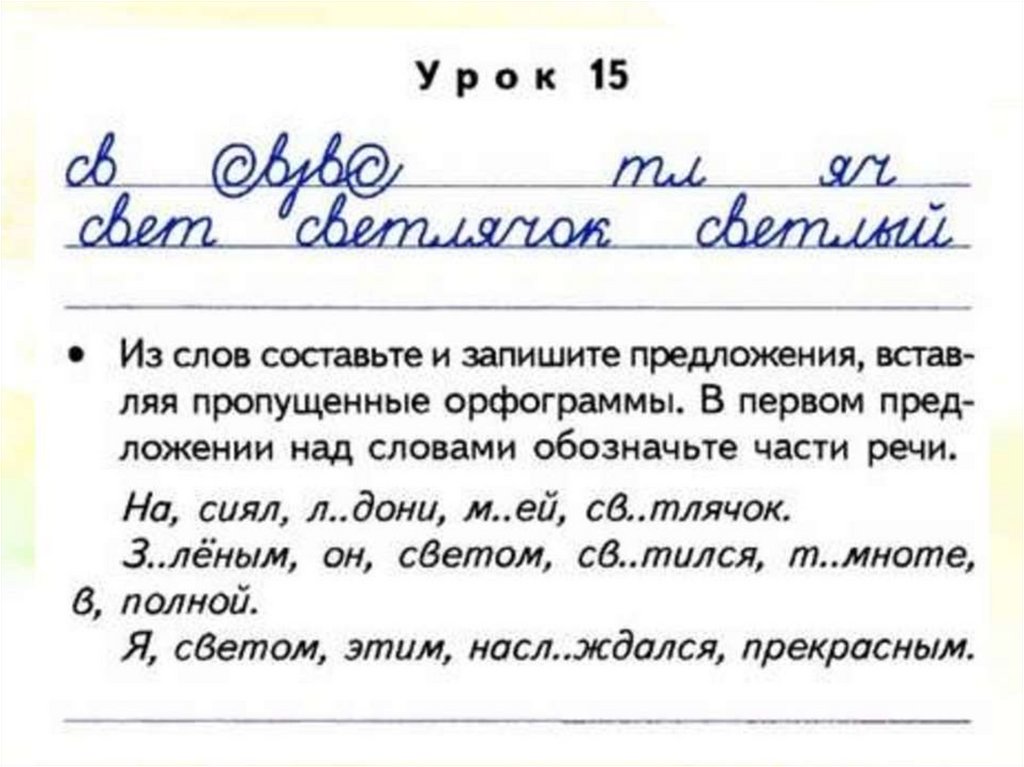 Урок 15
св свзвс тл яч
свет светлячок светлый
• Из слов составьте и запишите предложения, встав-
ляя пропущенные орфограммы. В первом пред-
ложении над словами обозначьте части речи.
На, сиял, л..дони, м..ей, св..тлячок.
З..лёным, он, светом, св..тился, т..мноте,
в, полной.
Я, светом, этим, насл..ждался, прекрасным.